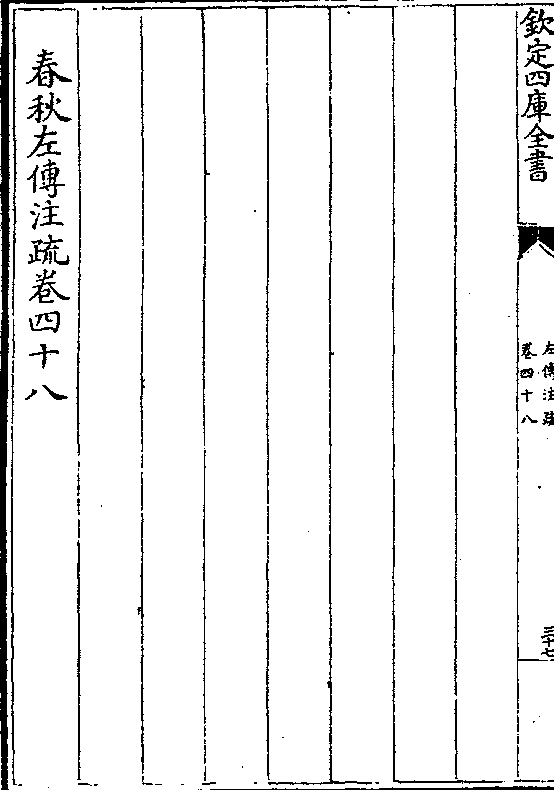 欽定四庫全書
左傳注疏
卷四十八
三十七
春秋左傳注疏卷四十八